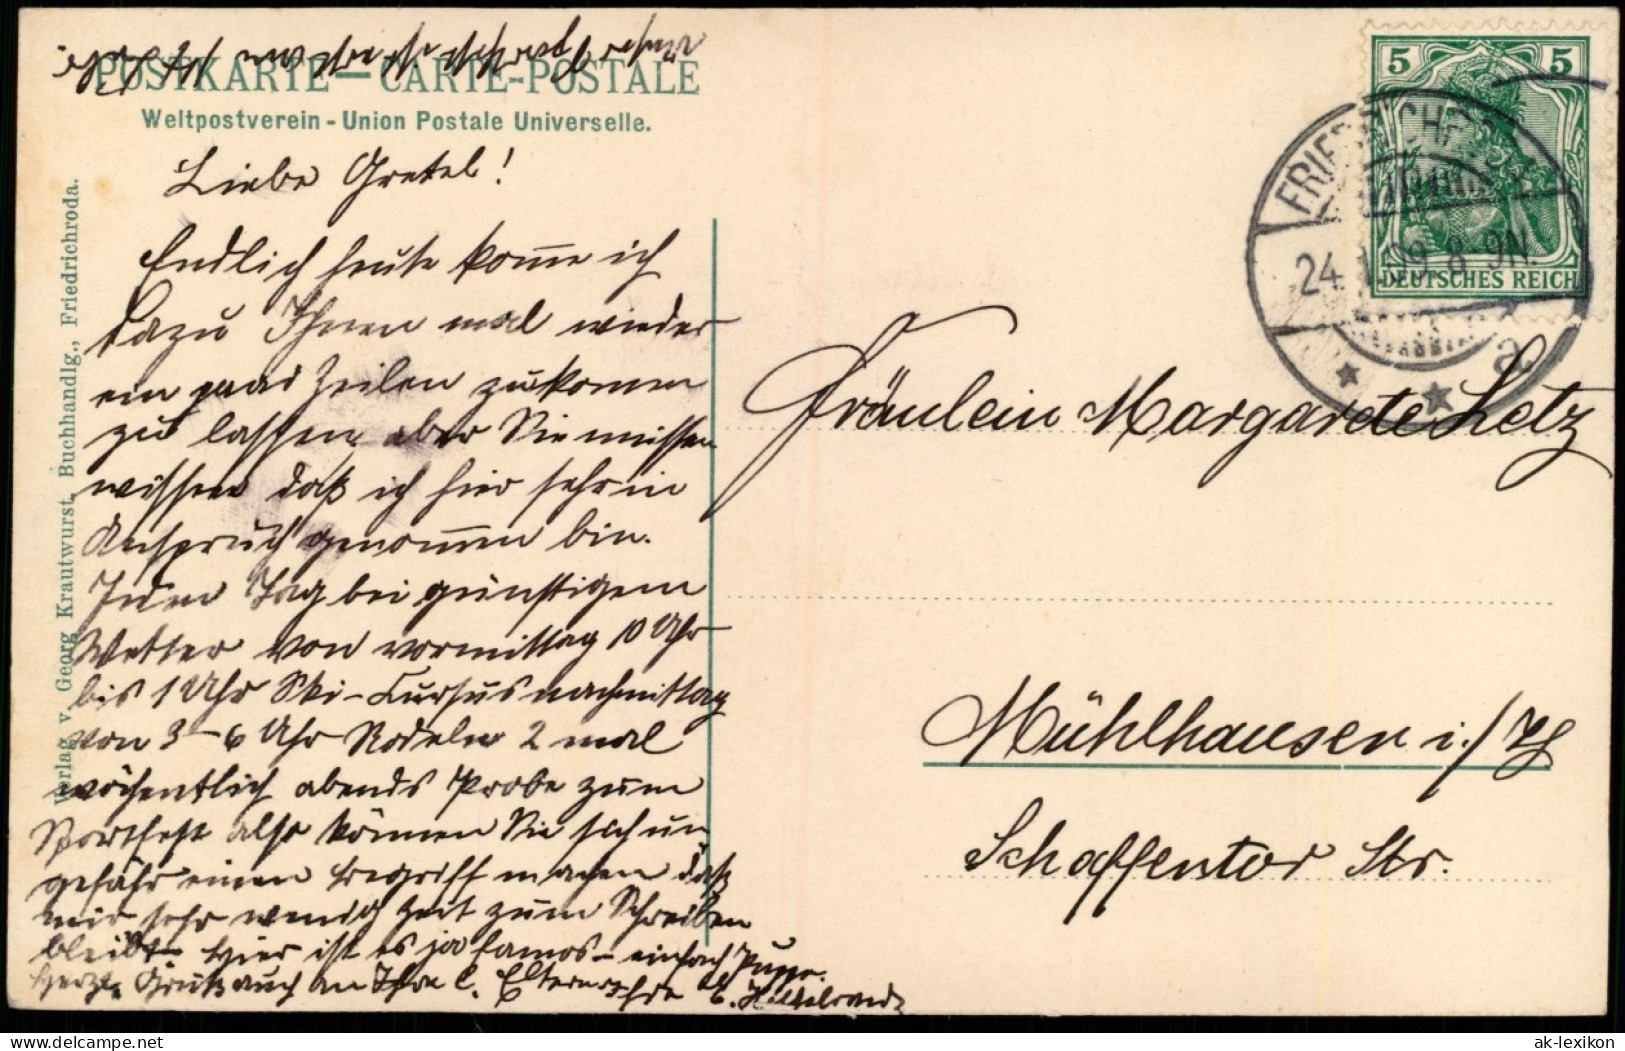 POSTKARTE — CARTE-POSTALE
Weltpostverein - Union Postale Universelle.
Liebe Gretel!
Endlich heute kom̅e ich
dazu Ihnen mal wieder
ein paar Zeilen zukomen
zu lassen aber Sie müssen
wissen daß ich hier sehr in
Anspruch genom̅en bin.
Jeden Tag bei günstigem
Wetter von vormittag 10 Uhr
bis 1 Uhr Ski-Cursus nachmittag
von 3-6 Uhr Rodeln 2 mal
wöchentlich abends Probe zum
Sportfest also können Sie sich un
gefähr einen Begriff machen daß
mir sehr wenig Zeit zum Schreiben
bleibt. Hier ist es ja famos - einfach Puppe.
Herzl. Gruß auch an Ihre l. Eltern Ihre E. Hildebrandt
Verlag v. Georg Krautwurst, Buchhandlg., Friedrichroda.
5 5
DEUTSCHES REICH
FRIEDRICHRODA
24. 1. 09. 8-9N.
* * a
Fräulein Margarete Letz
Mühlhausen i./Th
Schaffentor Str.
ak-lexikon